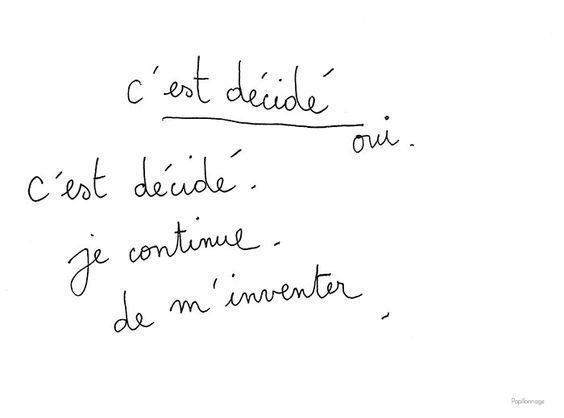 c'est décidé
oui.
c'est décidé.
je continue.
de m'inventer.
Papillonnage